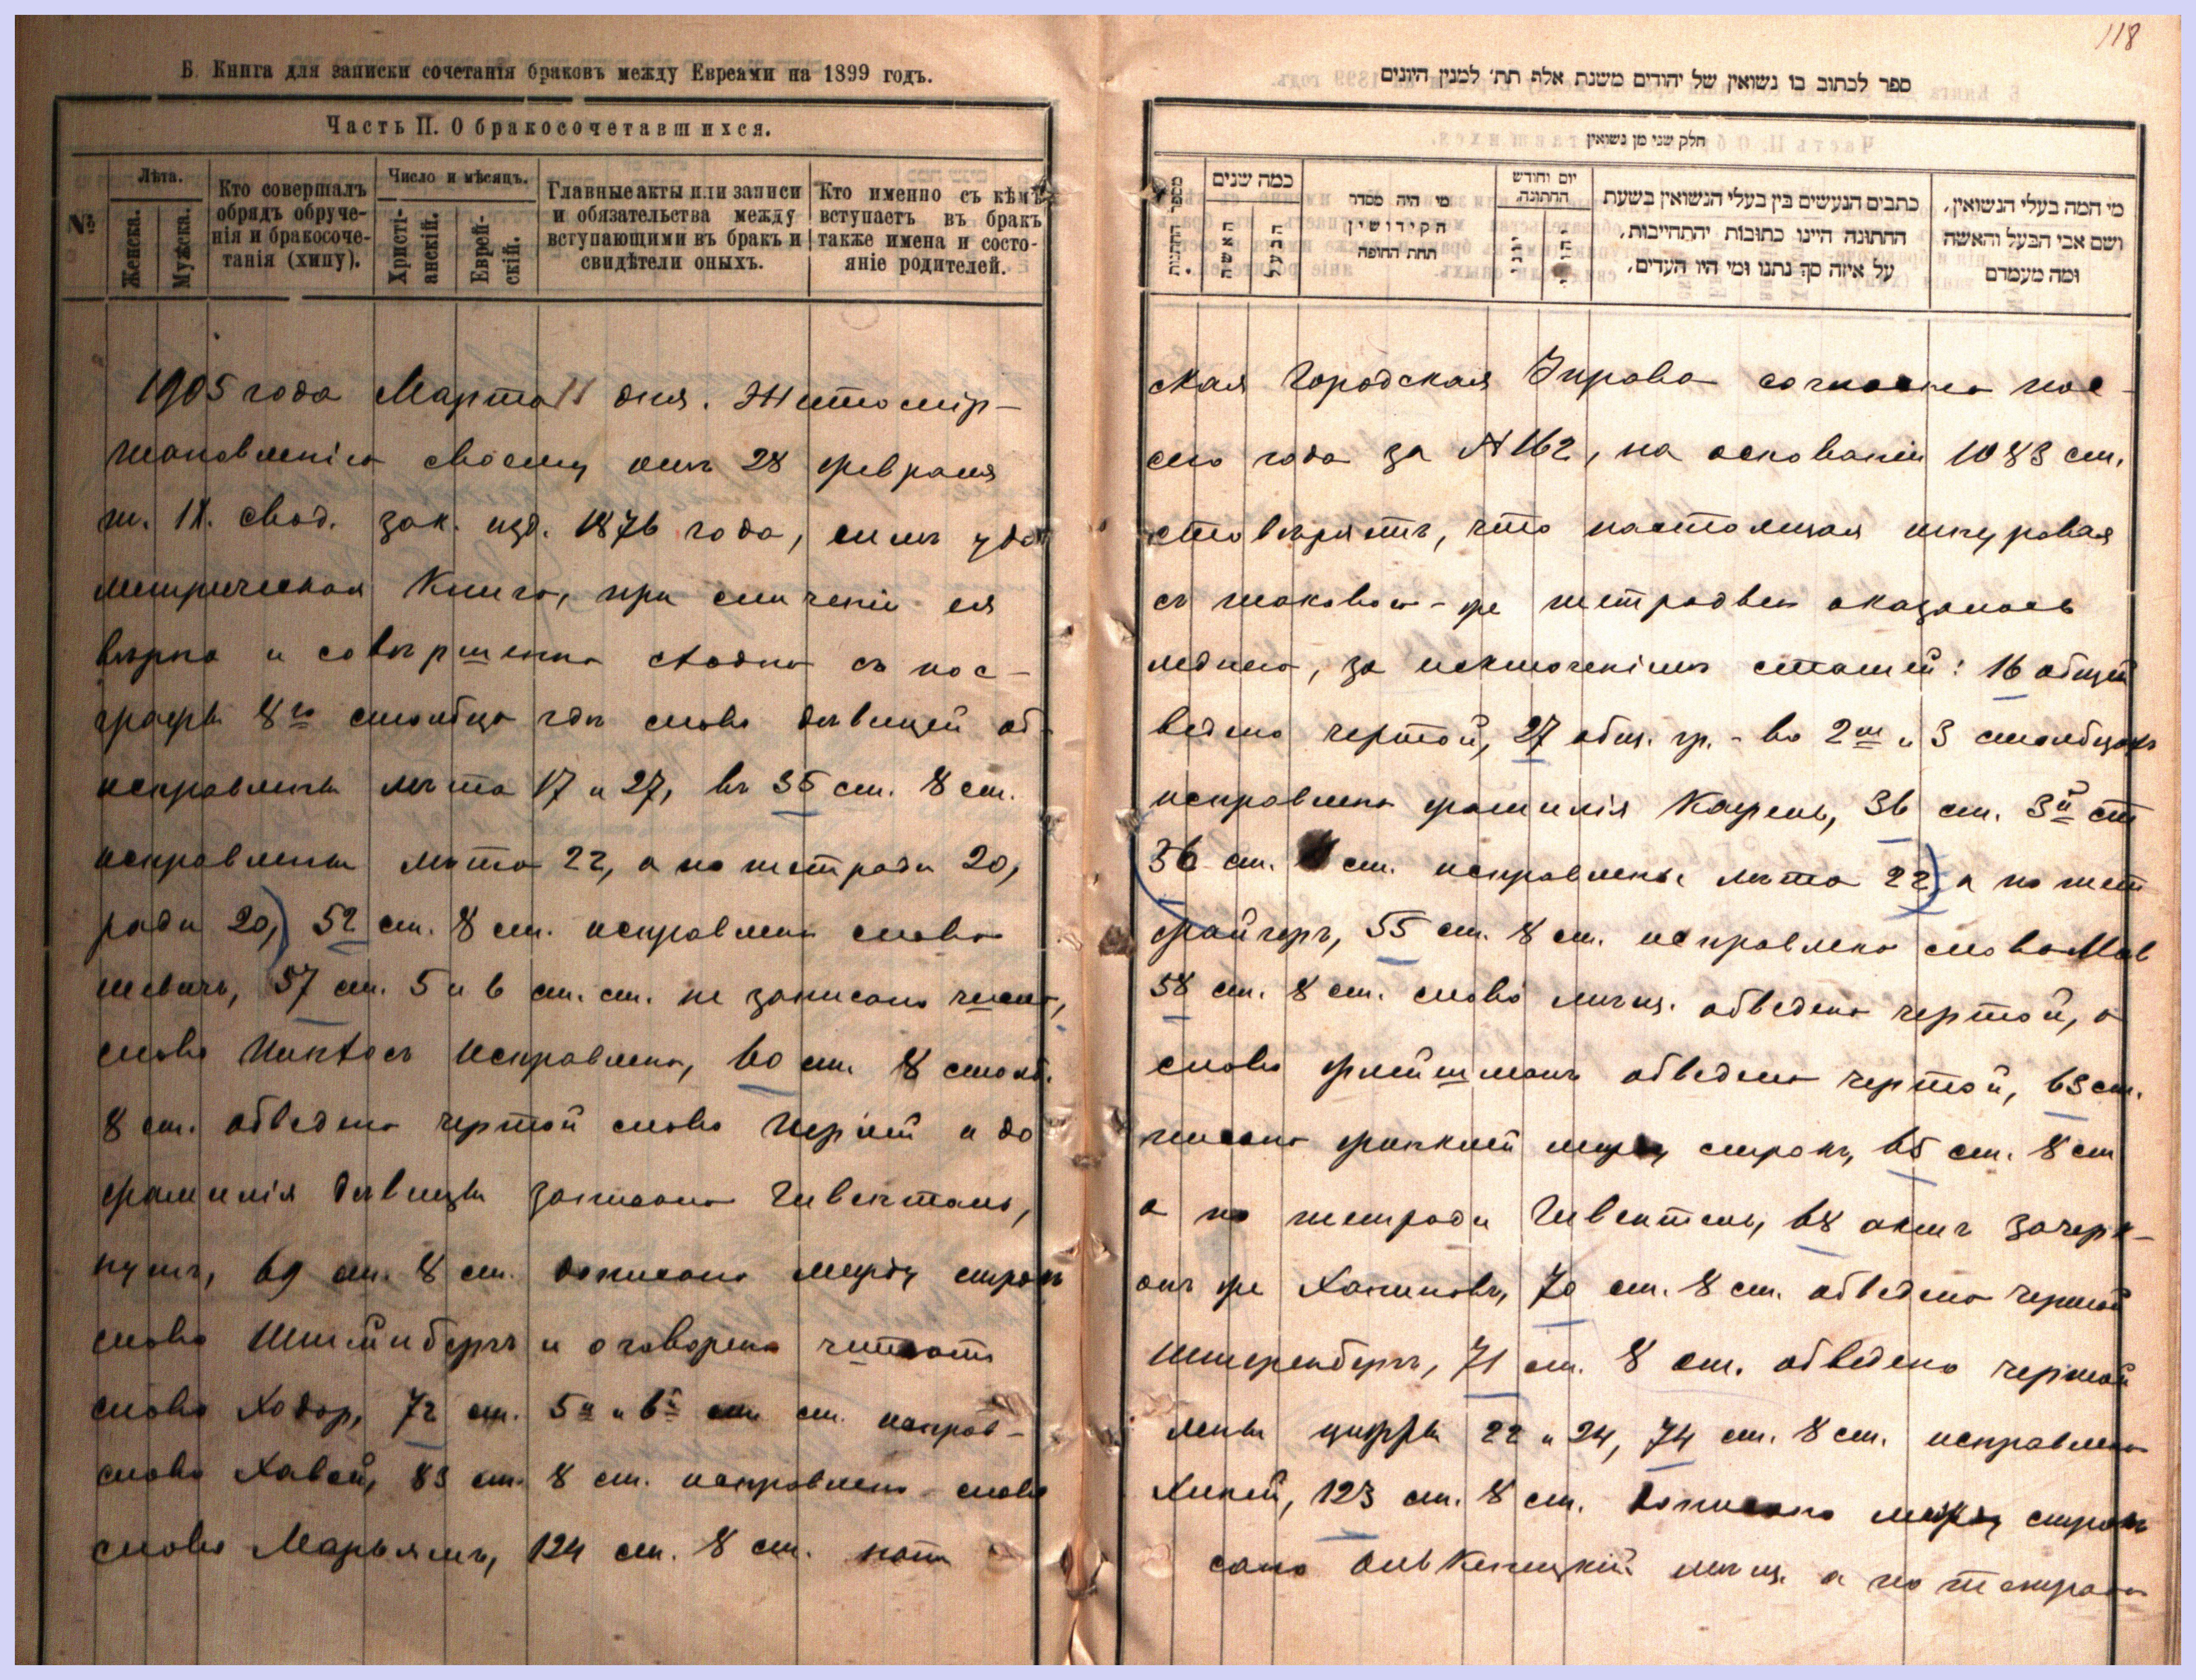 118
Б. Книга для записки сочетанія браковъ между Евреями на 1899 годъ.
Часть II. О бракосочетавшихся.
№
Лѣта.
Женска.
Мужска.
Кто совершалъ
обрядъ обруче-
нія и бракосоче-
танія (хипу).
Число и мѣсяцъ.
Христі-
анскій.
Еврей-
скій.
Главные акты или записи
и обязательства между
вступающими въ бракъ и
свидѣтели оныхъ.
Кто именно съ кѣмъ
вступаетъ въ бракъ
также имена и состо-
яніе родителей.
ספר לכתוב בו נשואין של יהודים משנת אלף תת׳ למנין היונים
חלק שני מן נשואין
מי המה בעלי הנשואין,
ושם אבי הבעל והאשה
ומה מעמדם
כתבים הנעשים בין בעלי הנשואין בשעת
החתונה היינו כתובות יהתחייבות,
על איזה סך נתנו ומי היו העדים,
יום וחודש
החתונה
מי היה מסדר
הקידושין
תחת החופה
כמה שנים
הבעל
האשה
מספר החתונות
1905 года Марта 11 дня. Житомір-
ская Городская Управа согласно пос-
тановленію своему отъ 28 февраля
сего года за №162, на основаніи 1083 ст.
т. IX. свод. зак. изд. 1876 года, симъ удо
стовѣряетъ, что настоящая шнуровая
метрическая Книга, при сличеніи ея
съ таковою-же тетрадью оказалась
вѣрна и совѣршенно сходна съ пос-
леднею, за исключеніемъ статей: 16 общей
графы 8го столбца гдѣ слово дѣвицей об-
ведено чертой, 27 общ. гр. - во 2м и 3 столбцахъ
исправлены лѣта 17 и 27, въ 35 ст. 8 ст.
исправлена фамилія Кацрель, 36 ст. 3й ст
исправлены лѣта 22, а по тетради 20,
(36 ст. ст. исправлены лѣта 22) а по тет
ради 20,) 52 ст. 8 ст. исправлено слово
файгеръ, 55 ст. 8 ст. исправлено слово Мов
шевичъ, 57 ст. 5 и 6 ст. ст. не записано число,
58 ст. 8 ст. слово мѣщ. обведено чертой, а
слово исправлено, 60 ст. 8 столб.
слово флейшманъ обведено чертой, 63 ст.
8 ст. обведено чертой слово и до
писано между строкъ, 65 ст. 8 ст
фамилія дѣвицы записана Гивенталь,
а по тетради Гивентель, 68 актъ зачерк-
нутъ, 69 ст. 8 ст. дописано между строкъ
онъ же Ханиновъ, 70 ст. 8 ст. обведено чертой
слово и оговорено читать
Штеренбергъ, 71 ст. 8 ст. обведено чертой
слово Ходор, 72 ст. 5й и 6й ст. исправ-
лены цифры 22 и 24, 74 ст. 8 ст. исправлено
слово Хавой, 83 ст. 8 ст. исправлено слово
123 ст. 8 ст. дописано между строкъ
слово Марьямъ, 124 ст. 8 ст. напи
сано мѣщ. а по тетради